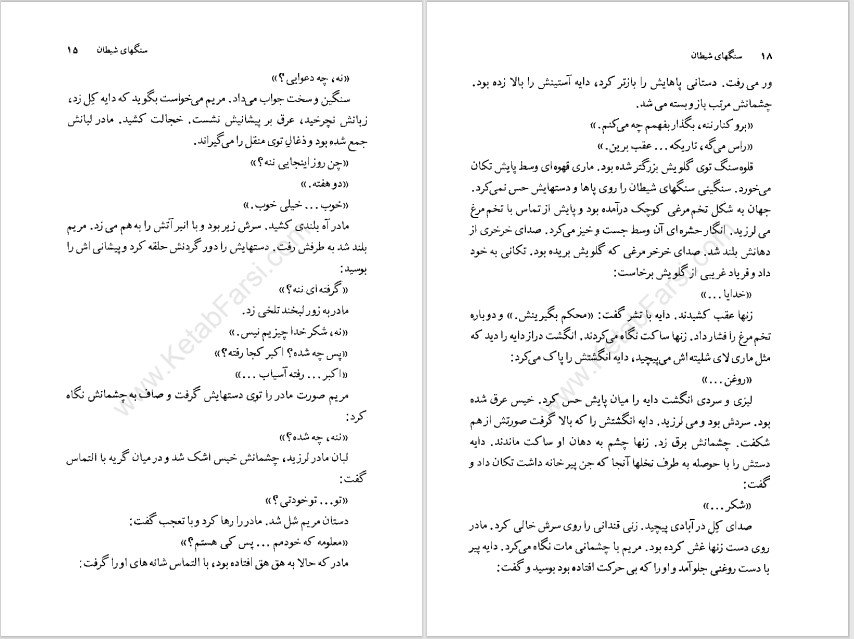 ۱۸ سنگهای شیطان
ور می‌رفت. دستانی پاهایش را بازتر کرد، دایه آستینش را بالا زده بود.
چشمانش مرتب باز و بسته می‌شد.
«برو کنار ننه، بگذار بفهمم چه می‌کنم.»
«راس می‌گه، تاریکه... عقب برین.»
قلوه‌سنگ توی گلویش بزرگتر شده بود. ماری قهوه‌ای وسط پایش تکان
می‌خورد. سنگینی سنگهای شیطان را روی پاها و دستهایش حس نمی‌کرد.
جهان به شکل تخم‌مرغی کوچک درآمده بود و پایش از تماس با تخم مرغ
می لرزید. انگار حشره‌ای آن وسط جست و خیز می‌کرد. صدای خرخری از
دهانش بلند شد. صدای خرخر مرغی که گلویش بریده بود. تکانی به خود
داد و فریاد غریبی از گلویش برخاست:
«خدایا...»
زنها عقب کشیدند. دایه با تشر گفت: «محکم بگیرینش.» و دوباره
تخم مرغ را فشار داد. زنها ساکت نگاه می‌کردند. انگشت دراز دایه را دید که
مثل ماری لای شلیته اش می‌پیچید، دایه انگشتش را پاک می‌کرد:
«روغن...»
لیزی و سردی انگشت دایه را میان پایش حس کرد. خیس عرق شده
بود. سردش بود و می لرزید. دایه انگشتش را که بالا گرفت صورتش از هم
شکفت. چشمانش برق زد. زنها چشم به دهان او ساکت ماندند. دایه
دستش را با حوصله به طرف نخلها آنجا که جن پیر خانه داشت تکان داد و
گفت:
«شکر...»
صدای کِل در آبادی پیچید. زنی قندانی را روی سرش خالی کرد. مادر
روی دست زنها غش کرده بود. مریم با چشمانی مات نگاه می‌کرد. دایه پیر
با دست روغنی جلو آمد و او را که بی حرکت افتاده بود بوسید و گفت:
سنگهای شیطان ۱۵
«نه، چه دعوایی؟»
سنگین و سخت جواب می‌داد. مریم می‌خواست بگوید که دایه کِل زد،
زبانش نچرخید، عرق بر پیشانیش نشست. خجالت کشید. مادر لبانش
جمع شده بود و ذغالِ توی منقل را می‌گیراند.
«چن روز اینجایی ننه؟»
«دو هفته.»
«خوب... خیلی خوب.»
مادر آه بلندی کشید. سرش زیر بود و با انبر آتش را به هم می زد. مریم
بلند شد به طرفش رفت. دستهایش را دور گردنش حلقه کرد و پیشانی اش را
بوسید:
«گرفته ای ننه؟»
مادر به زور لبخند تلخی زد.
«نه، شکر خدا چیزیم نیس.»
«پس چه شده؟ اکبر کجا رفته؟»
«اکبر... رفته آسیاب ...»
مریم صورت مادر را توی دستهایش گرفت و صاف به چشمانش نگاه
کرد:
«ننه، چه شده؟»
لبان مادر لرزید، چشمانش خیس اشک شد و در میان گریه با التماس
گفت:
«تو... تو خودتی؟»
دستان مریم شل شد. مادر را رها کرد و با تعجب گفت:
«معلومه که خودمم ... پس کی هستم؟»
مادر که حالا به هق هق افتاده بود، با التماس شانه های او را گرفت:
www.KetabFarsi.com
www.KetabFarsi.com